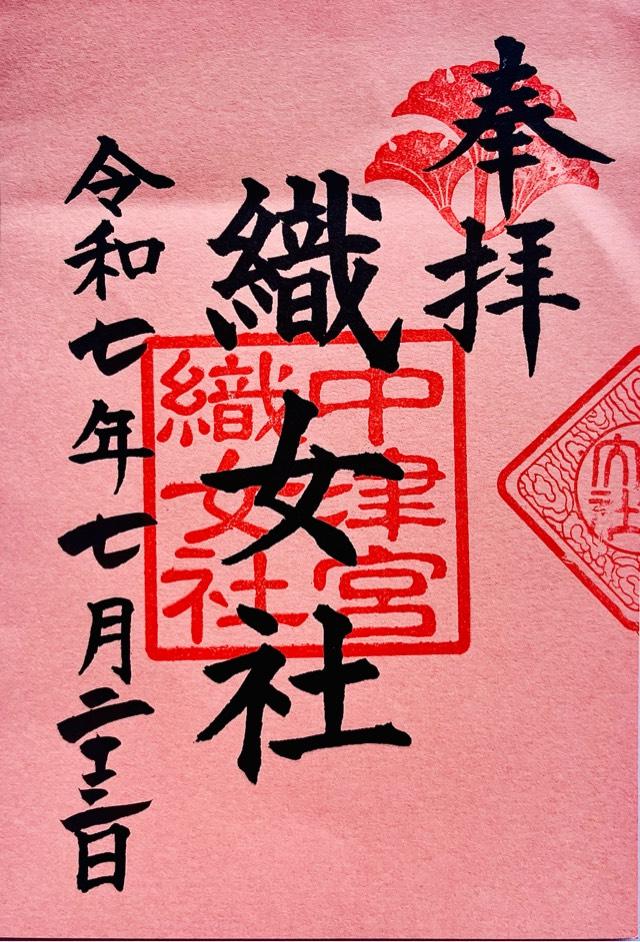 奉拝
織女社
令和七年七月二十三日
中津宮
織女社